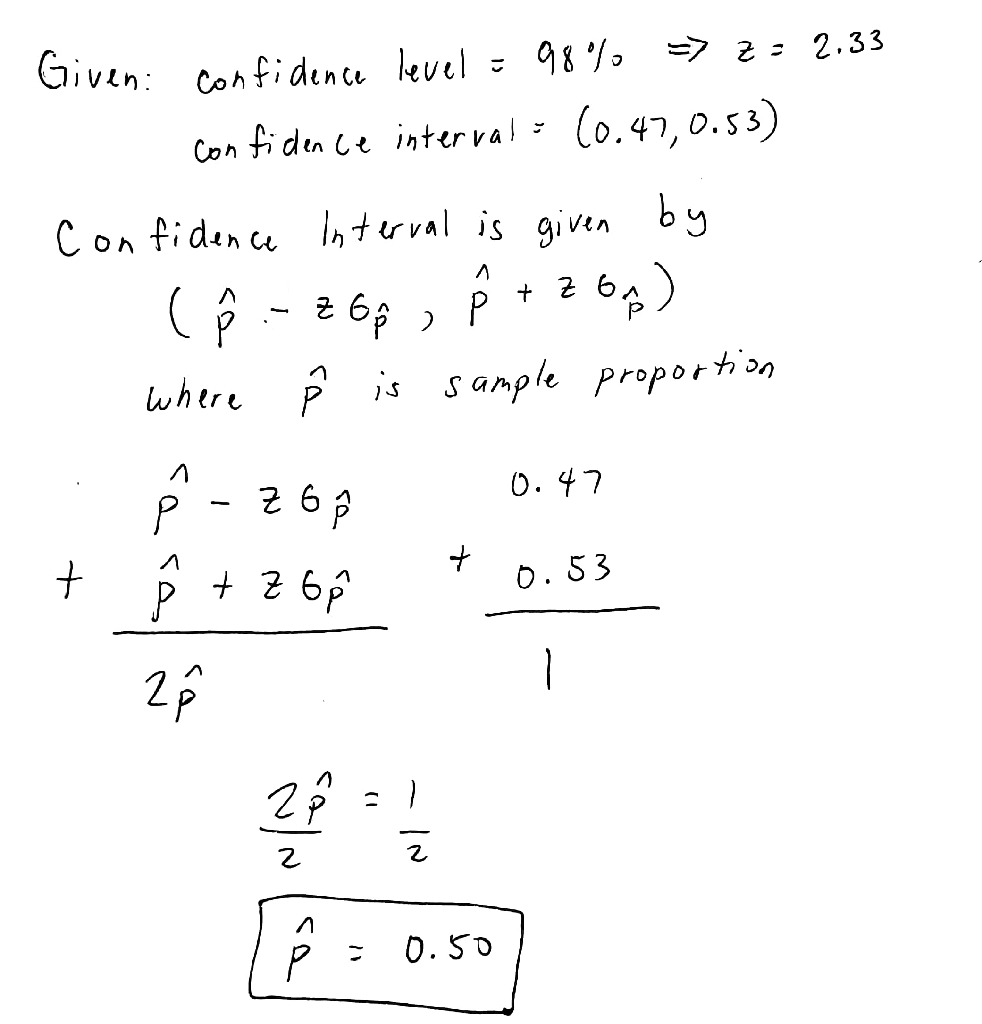 Given: confidence level = 98% => z = 2.33
confidence interval = (0.47, 0.53)
Confidence Interval is given by
( p̂ - z σp̂ , p̂ + z σp̂ )
where p̂ is sample proportion
p̂ - z σp̂ 0.47
+ p̂ + z σp̂ + 0.53
2p̂ 1
2p̂ = 1
2 2
p̂ = 0.50